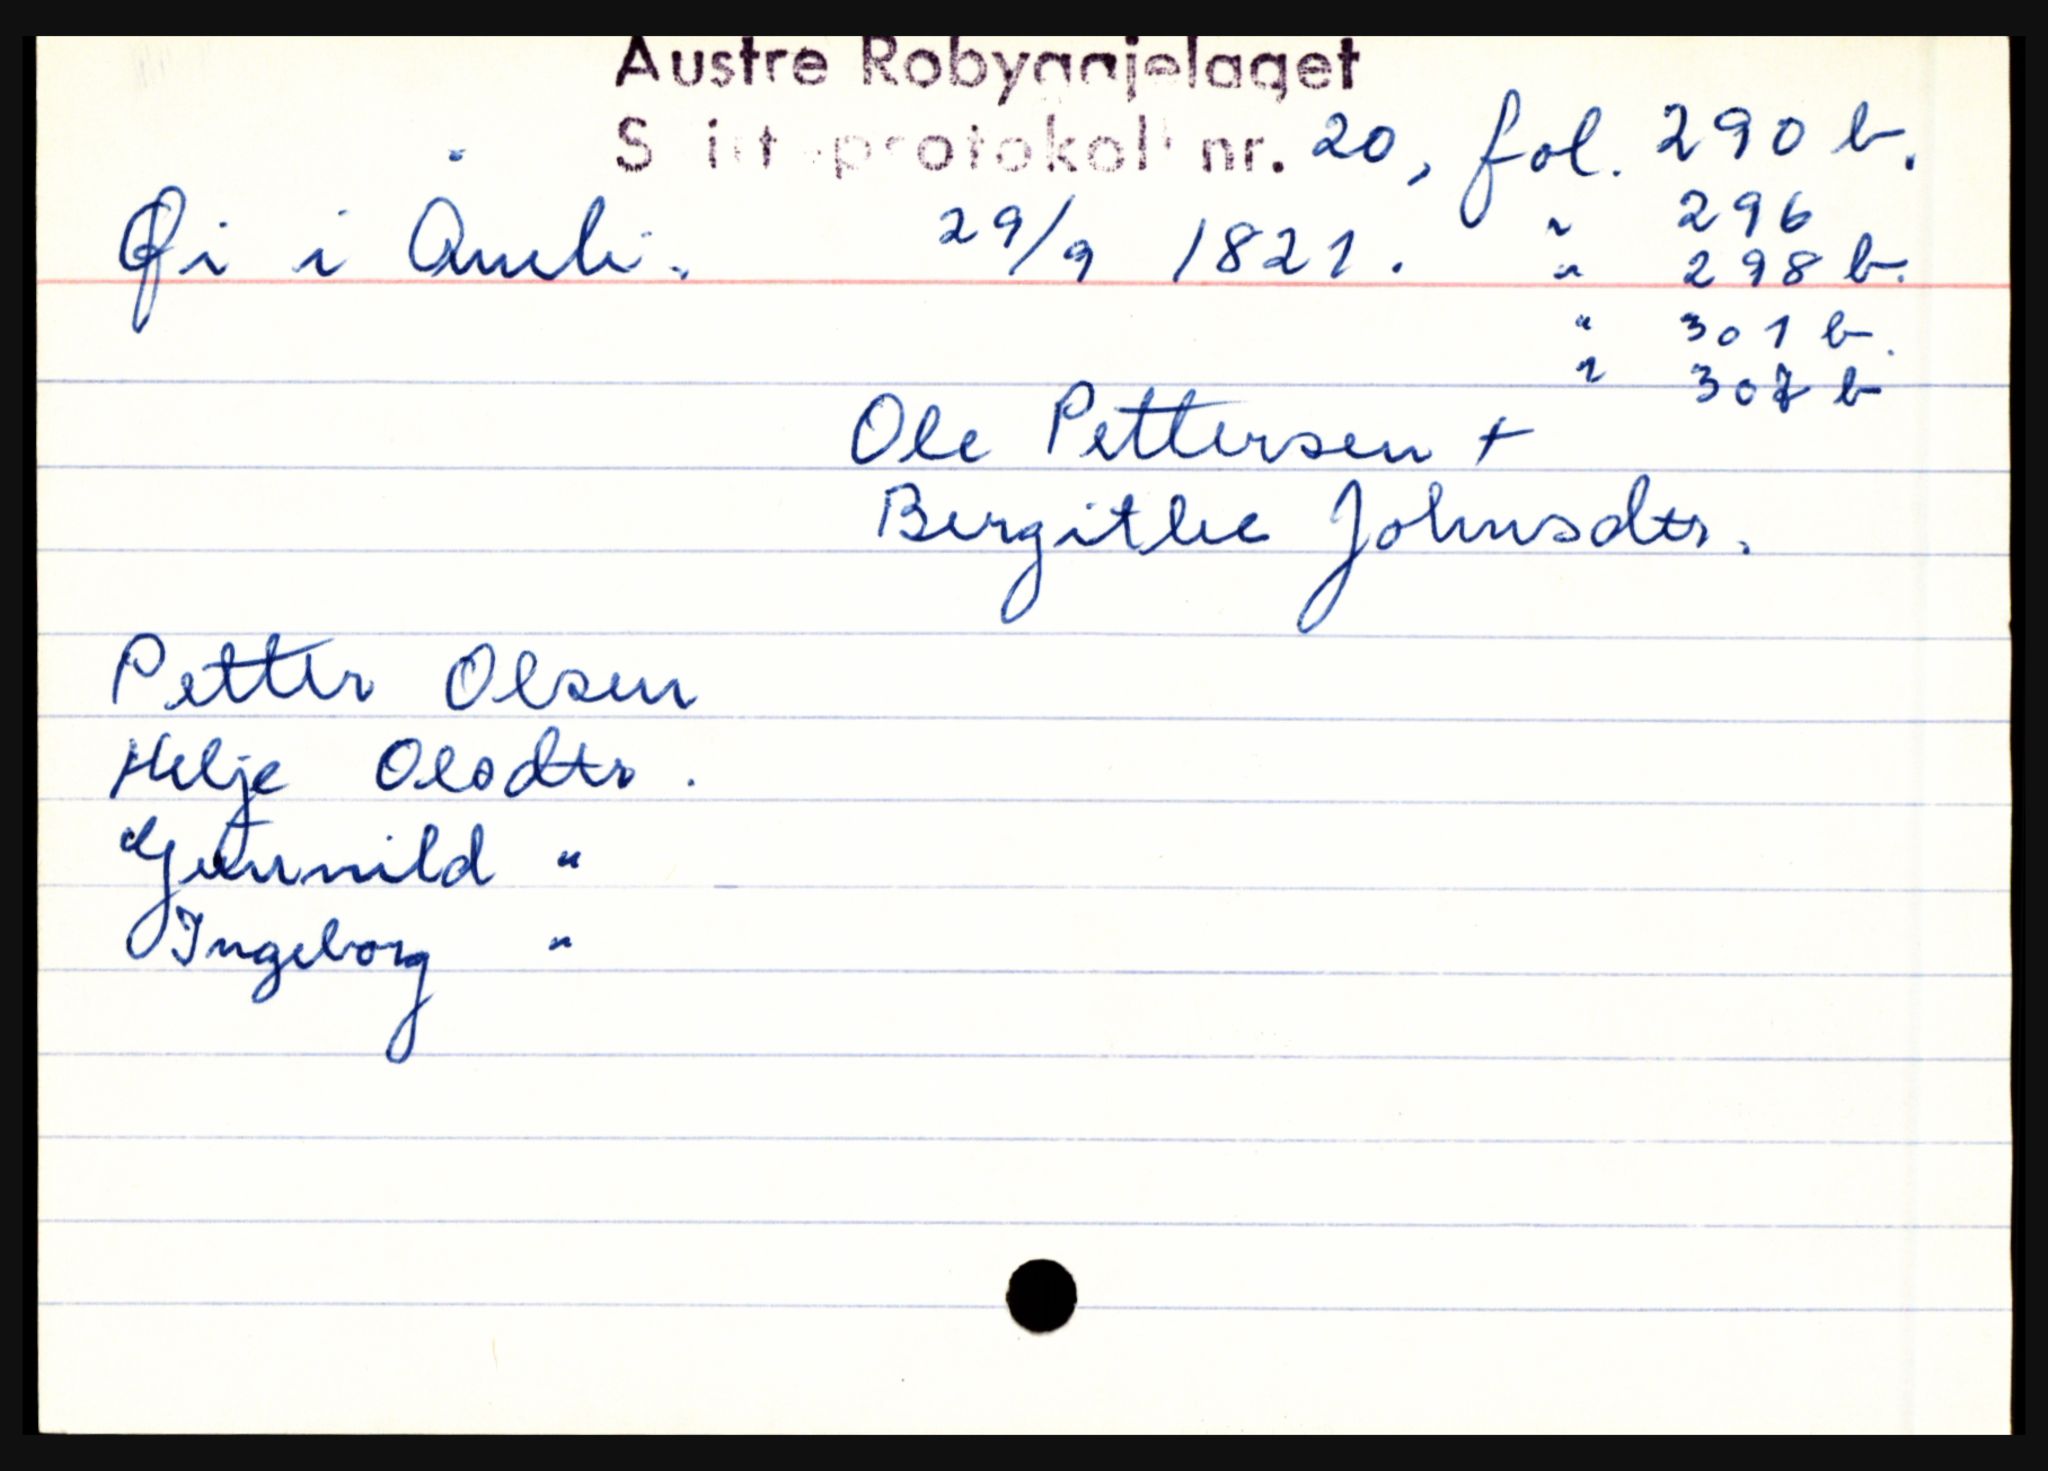 Austre Robyggjelaget
Skifteprotokoll nr. 20, fol. 290 b.
Øi i Åmli. 29/9 1821. " 296
" 298 b.
" 301 b.
" 307 b
Ole Pettersen +
Bergithe Johnsdtr.
Petter Olsen
Helje Olsdtr.
Gunnild "
Ingeborg "